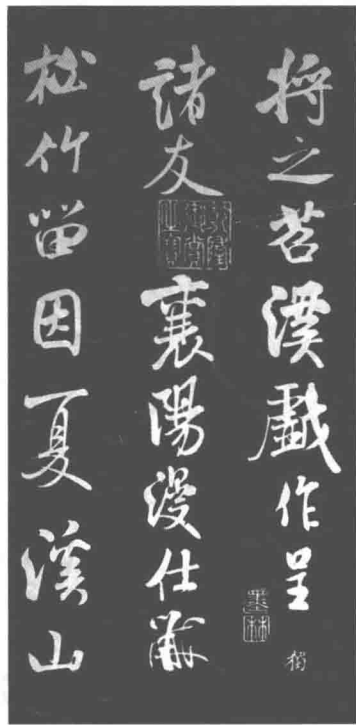 將之苕溪戲作呈
諸友 襄陽漫仕黻
松竹留因夏溪山
墨林